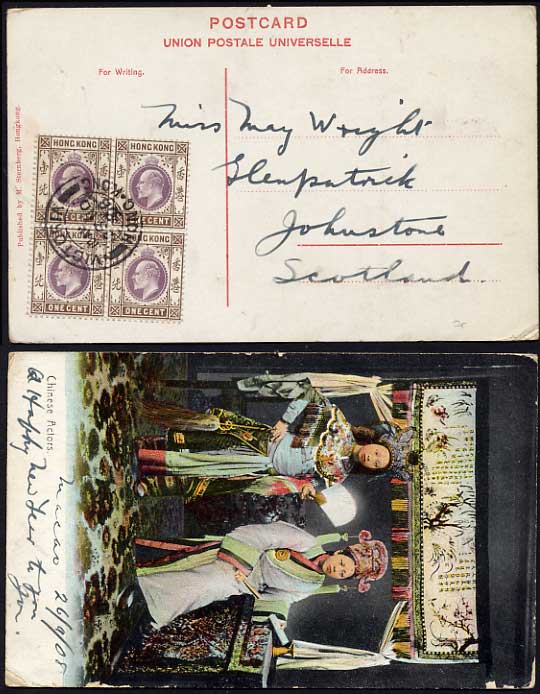 POSTCARD
UNION POSTALE UNIVERSELLE
For Writing.
For Address.
Published by M. Sternberg, Hongkong.
Miss May Wright
Glenpatrick
Johnstone
Scotland.
HONG KONG
HONG KONG
ONE CENT
ONE CENT
HONG KONG
ONE CENT
ONE CENT
VICTORIA
HONG-KONG
Chinese Actors.
Macao
A Happy New Year to you.